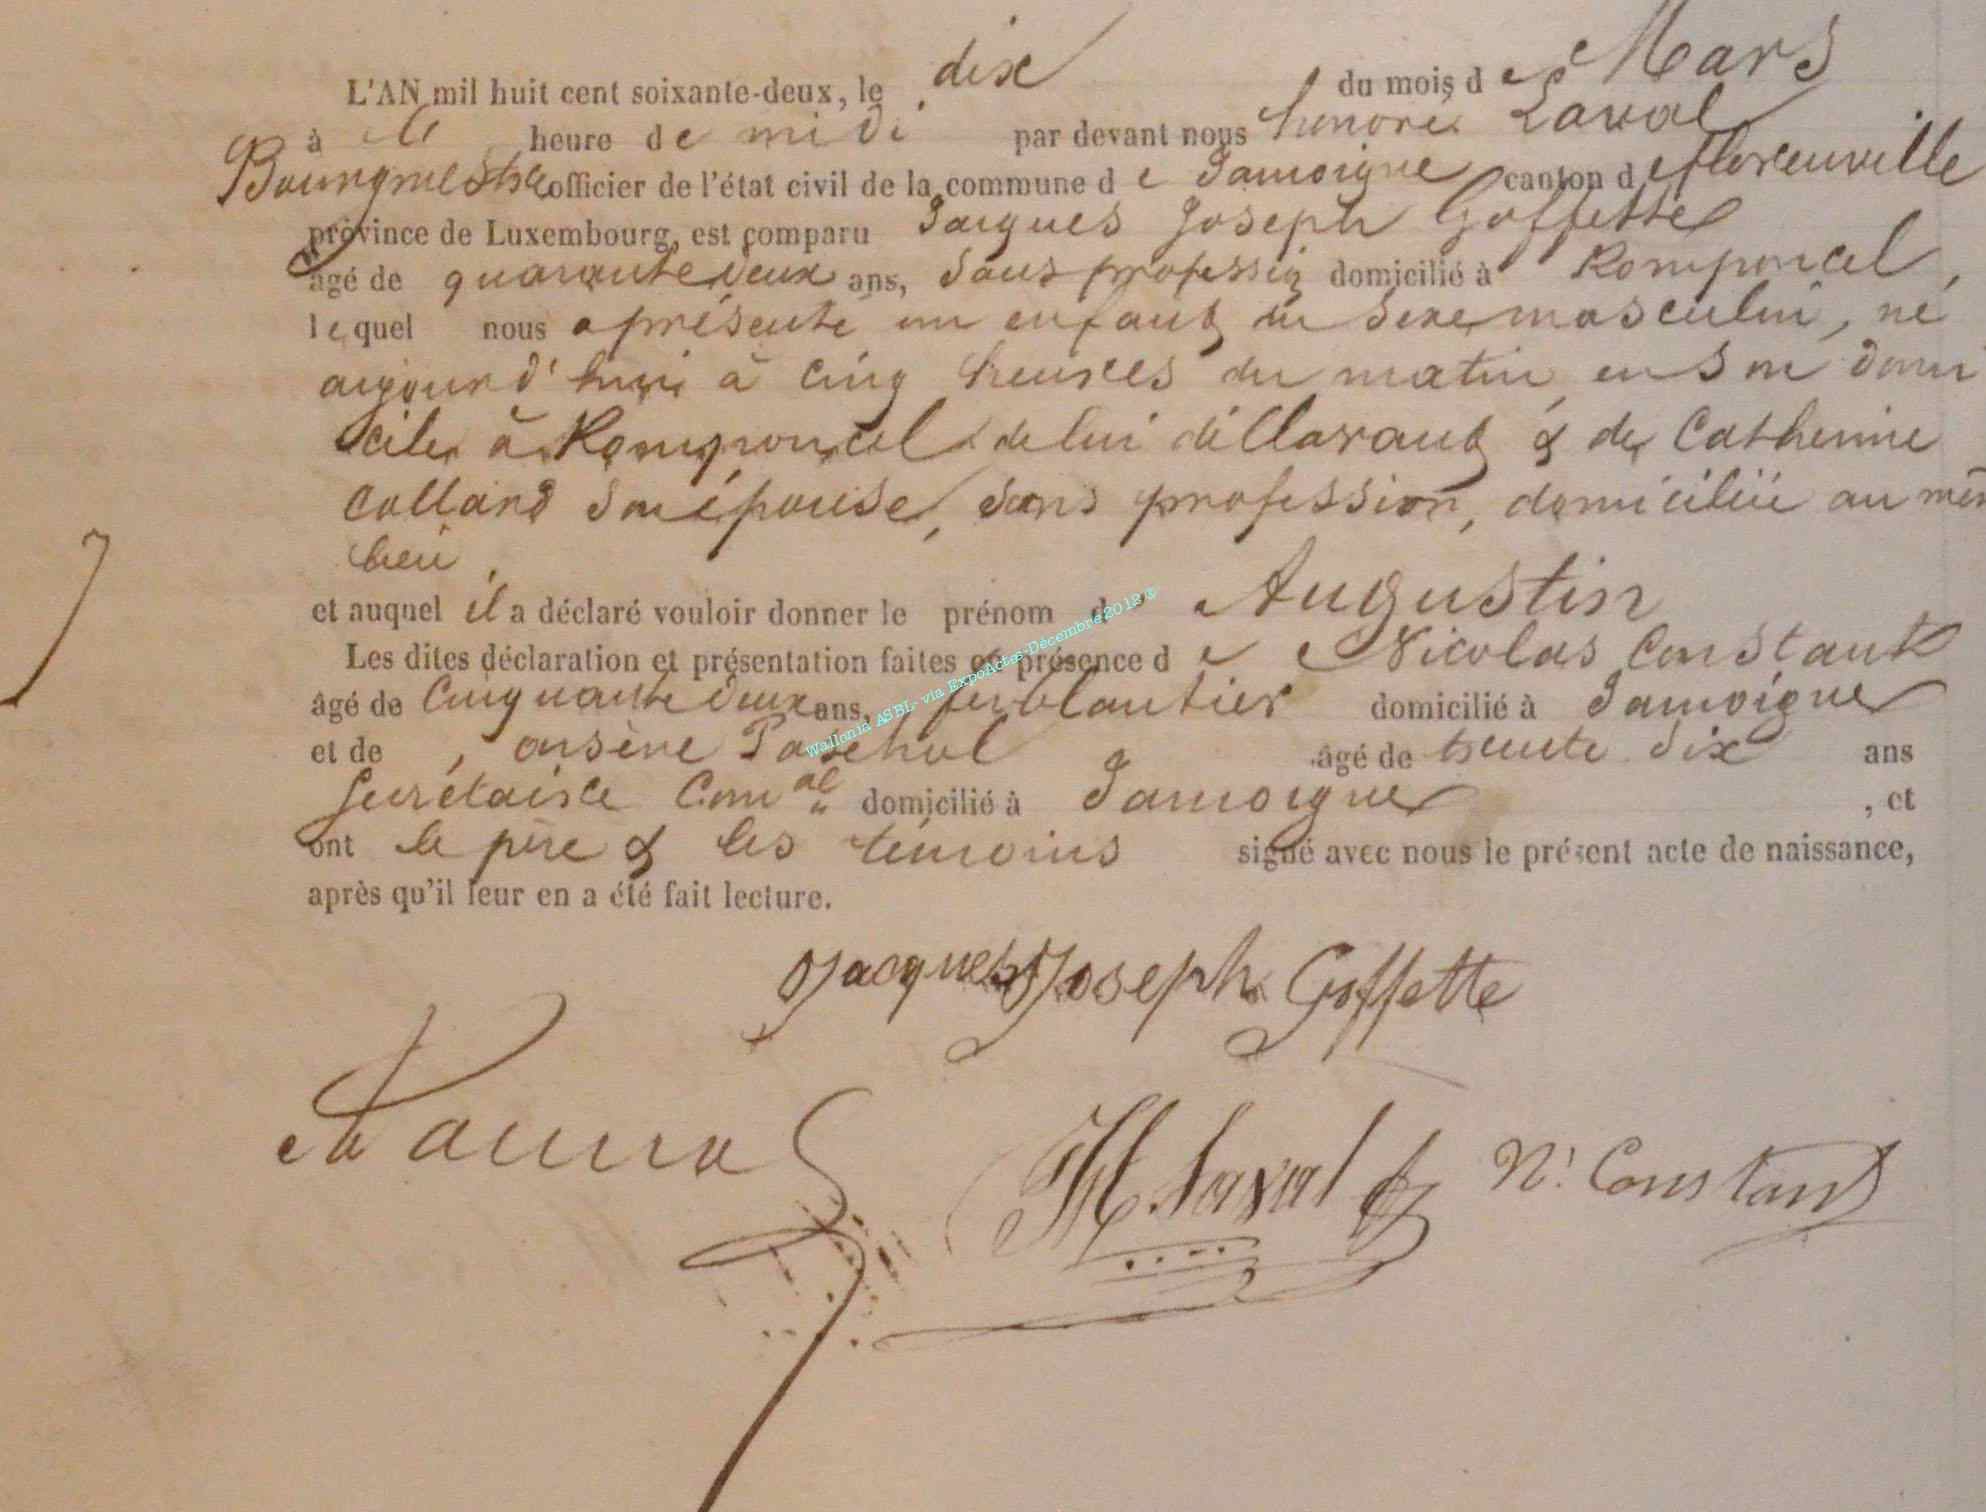 L'AN mil huit cent soixante-deux, le dix du mois de Mars
à l' heure de midi par devant nous honoré Laval
Bourgmestre officier de l'état civil de la commune de Jamoigne canton de florenville
province de Luxembourg, est comparu Jacques Joseph Goffette
âgé de quarante deux ans, sans profession domicilié à Romponcel,
lequel nous a présenté un enfant du sexe masculin, né
aujourd'hui à cinq heures du matin en son domi
cile à Romponcel de lui déclarant & de Catherine
Collard son épouse, sans profession, domiciliée au mêm
lieu,
et auquel il a déclaré vouloir donner le prénom d Augustin
Les dites déclaration et présentation faites en présence de Nicolas Constant
âgé de Cinquante deux ans, ferblantier domicilié à Jamoigne
et de arsène Paschal âgé de trente six ans
Secrétaire Com.al domicilié à Jamoigne, et
ont le père & les témoins signé avec nous le présent acte de naissance,
après qu'il leur en a été fait lecture.
Jacques Joseph Goffette
H. Laval N. Constant
Wallonia ASBL- via ExpoActes-Décembre 2018©